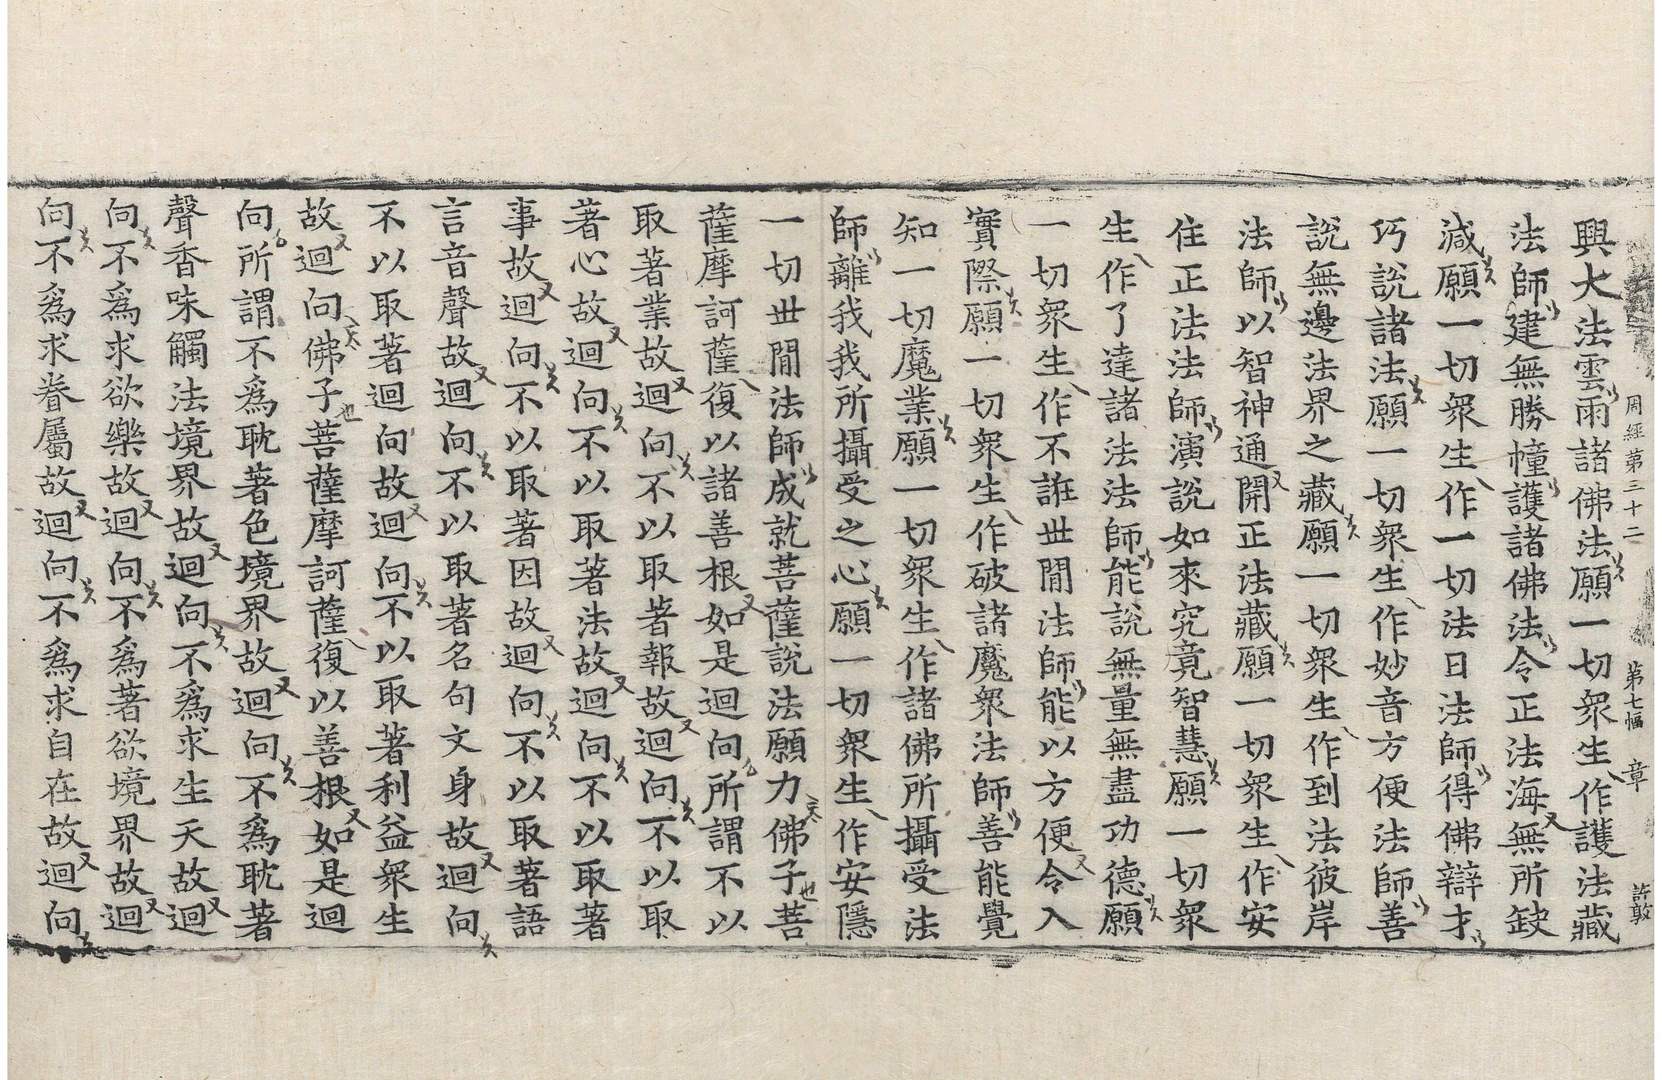 周經第三十二 第七幅 章 許敦
興大法雲雨諸佛法願一切衆生作護法藏
法師建無勝幢護諸佛法令正法海無所缺
減願一切衆生作一切法日法師得佛辯才
巧說諸法願一切衆生作妙音方便法師善
說無邊法界之藏願一切衆生作到法彼岸
法師以智神通開正法藏願一切衆生作安
住正法法師演說如來究竟智慧願一切衆
生作了達諸法法師能說無量無盡功德願
一切衆生作不誑世閒法師能以方便令入
實際願一切衆生作破諸魔衆法師善能覺
知一切魔業願一切衆生作諸佛所攝受法
師離我我所攝受之心願一切衆生作安隱
一切世閒法師成就菩薩說法願力佛子菩
薩摩訶薩復以諸善根如是迴向所謂不以
取著業故迴向不以取著報故迴向不以取
著心故迴向不以取著法故迴向不以取著
事故迴向不以取著因故迴向不以取著語
言音聲故迴向不以取著名句文身故迴向
不以取著迴向故迴向不以取著利益衆生
故迴向佛子菩薩摩訶薩復以善根如是迴
向所謂不爲耽著色境界故迴向不爲耽著
聲香味觸法境界故迴向不爲求生天故迴
向不爲求欲樂故迴向不爲著欲境界故迴
向不爲求眷屬故迴向不爲求自在故迴向